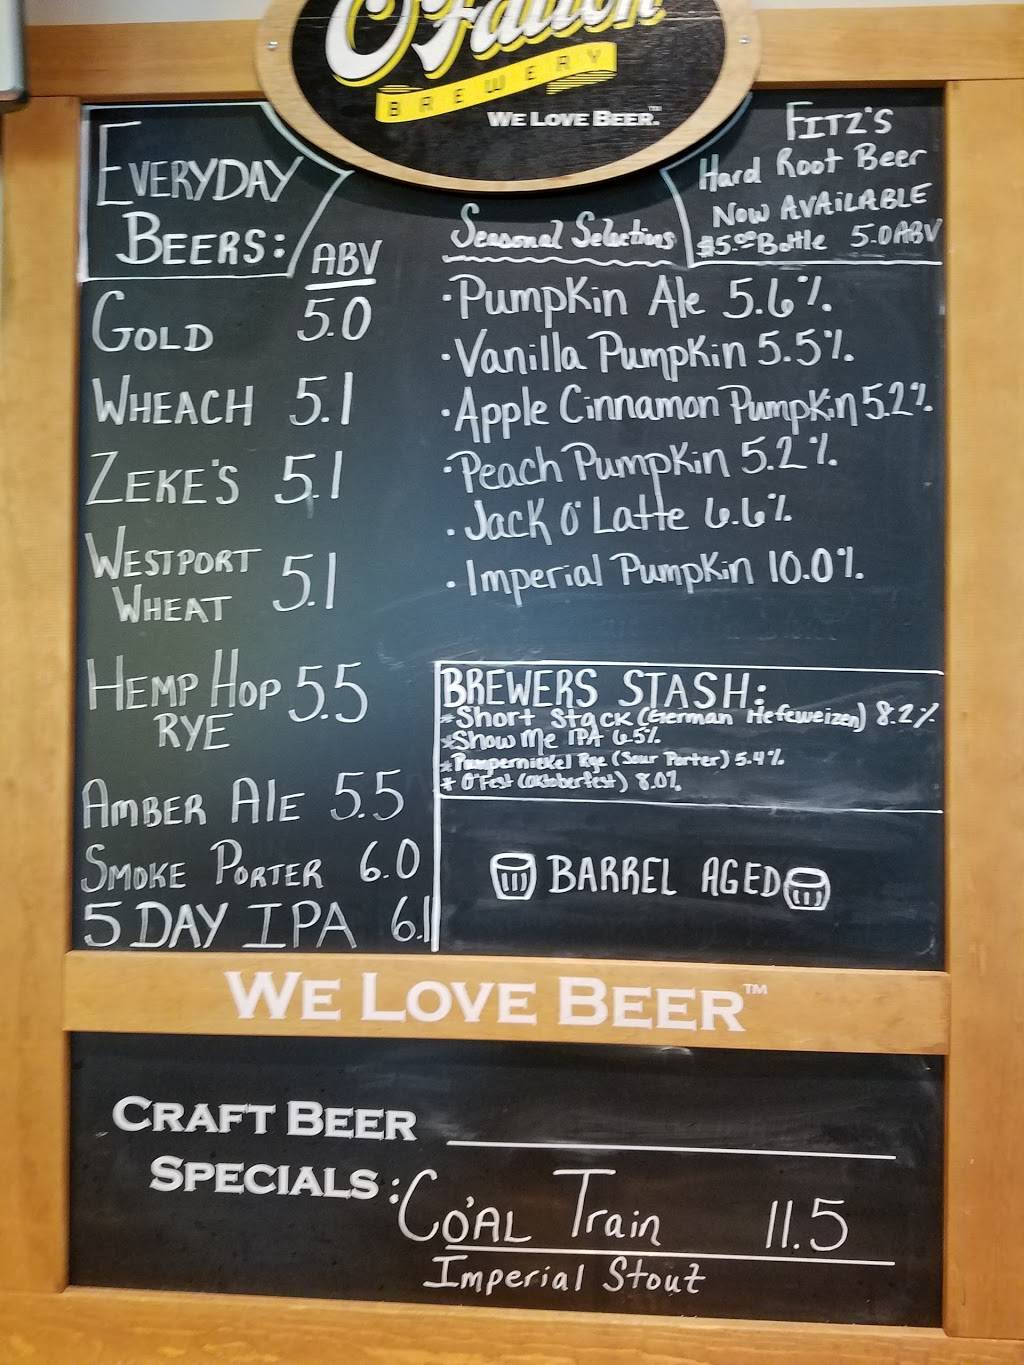 O'Fallon
BREWERY
WE LOVE BEER.™
EVERYDAY
BEERS:
ABV
GOLD 5.0
WHEACH 5.1
ZEKE'S 5.1
WESTPORT
WHEAT 5.1
HEMP HOP
RYE 5.5
AMBER AlE 5.5
SMOKE PORTER 6.0
5 DAY IPA 6.1
Seasonal Selections
·Pumpkin Ale 5.6%.
·Vanilla Pumpkin 5.5%.
·Apple Cinnamon Pumpkin 5.2%.
·Peach Pumpkin 5.2%.
·Jack O' Latte 6.6%.
·Imperial Pumpkin 10.0%.
FITZ'S
Hard Root Beer
NOW AVAILABLE
$5.00 Bottle 5.0 ABV
BREWERS STASH:
*Short Stack (German Hefeweizen) 8.2%
*Show Me IPA 6.5%.
*Pumpernickel Rye (Sour Porter) 5.4%
* O'Fest (Oktoberfest) 8.0%
BARREL AGED
WE LOVE BEER™
CRAFT BEER
SPECIALS:
CO'AL Train 11.5
Imperial Stout